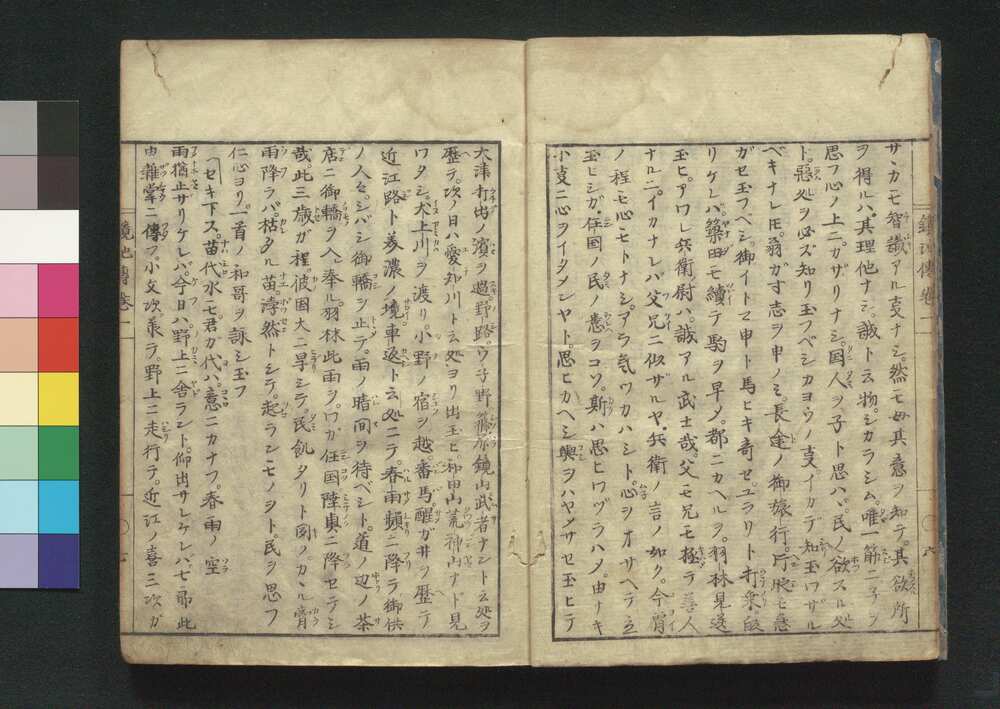 サヽカモ智識アル支ナシ。然モ母其意ヲ知テ。其欲所
ヲ得ルハ。其理他ナシ。誠ト云物シカラシム。唯一筋ニ子ヲ
思フ心ノ上ニ。カザリナシ。国人ヲ子ト思ハヾ。民ノ欲スル処
ト。惡処ヲ必ズ知リ玉フベシカヨウノ支。イカデ知玉ワザル
ベキナレ𪜈。翁ガ寸志ヲ申ノミ。長途ノ御旅行。片時モ急
ガセ玉フベシ。御イトマ申ト馬ヒキ寄セ。ユラリト打乗。皈
リケレバ。築田モ續テ駒ヲ早メ。都ニカヘルヲ。羽林見送
玉ヒ。アワレ兵衛尉ハ。誠アル武士哉。父モ兄モ極テ善人
ナルニ。イカナレバ父兄ニ似ザルヤ。兵衛ノ言ノ如ク。今宵
ノ程モ心モトナシ。アラ気ヅカハシト心ヲオサヘテ立
玉ヒシガ。任国ノ民ノ愁ヲコソ。斯ハ思ヒワヅラハメ。由ナキ
小支ニ心ヲイタメンヤト。思ヒカヘシ輿ヲハヤメサセ玉ヒテ
大津打出ノ濱ヲ過。野路。ウ子野。篠原鏡山武者ナントニ云処ヲ
歴テ。次ノ日ハ愛知川ト云処ヨリ出玉ヒ。和田山荒神山ナド見
ワタシ。犬上川ヲ渡リ。小野ノ宿ヲ越。番馬醒ガ井ヲ歴テ
近江路ト美濃ノ境車返ト云処ニテ。春雨頻ニ降ラ御供
ノ人々。シバシ御轎ヲ止テ。雨ノ晴間ヲ待ベシト。道ノ辺ノ茶
店ニ御轎ヲ入奉ル。羽林此雨ヲ。ワガ任国陸奥ニ降セテシ
哉。此三歳ガ程。彼国大ニ旱シテ。民飢タリト聞ク。カヽル膏
雨降ラバ。枯タル苗。浡然トシテ。起ランモノヲト。民ヲ思フ
仁心ヨリ。一首ノ和哥ヲ詠シ玉フ
セキ下ス。苗代水モ君ガ代ハ。意ニカナフ。春雨ノ空
雨猶止ザリケレバ。今日ハ。野上ニ舎ラント。仰出サレケレバ。七郎此
由雜掌ニ傳フ。小文次承テ。野上ニ走行テ。近江ノ喜三次ガ